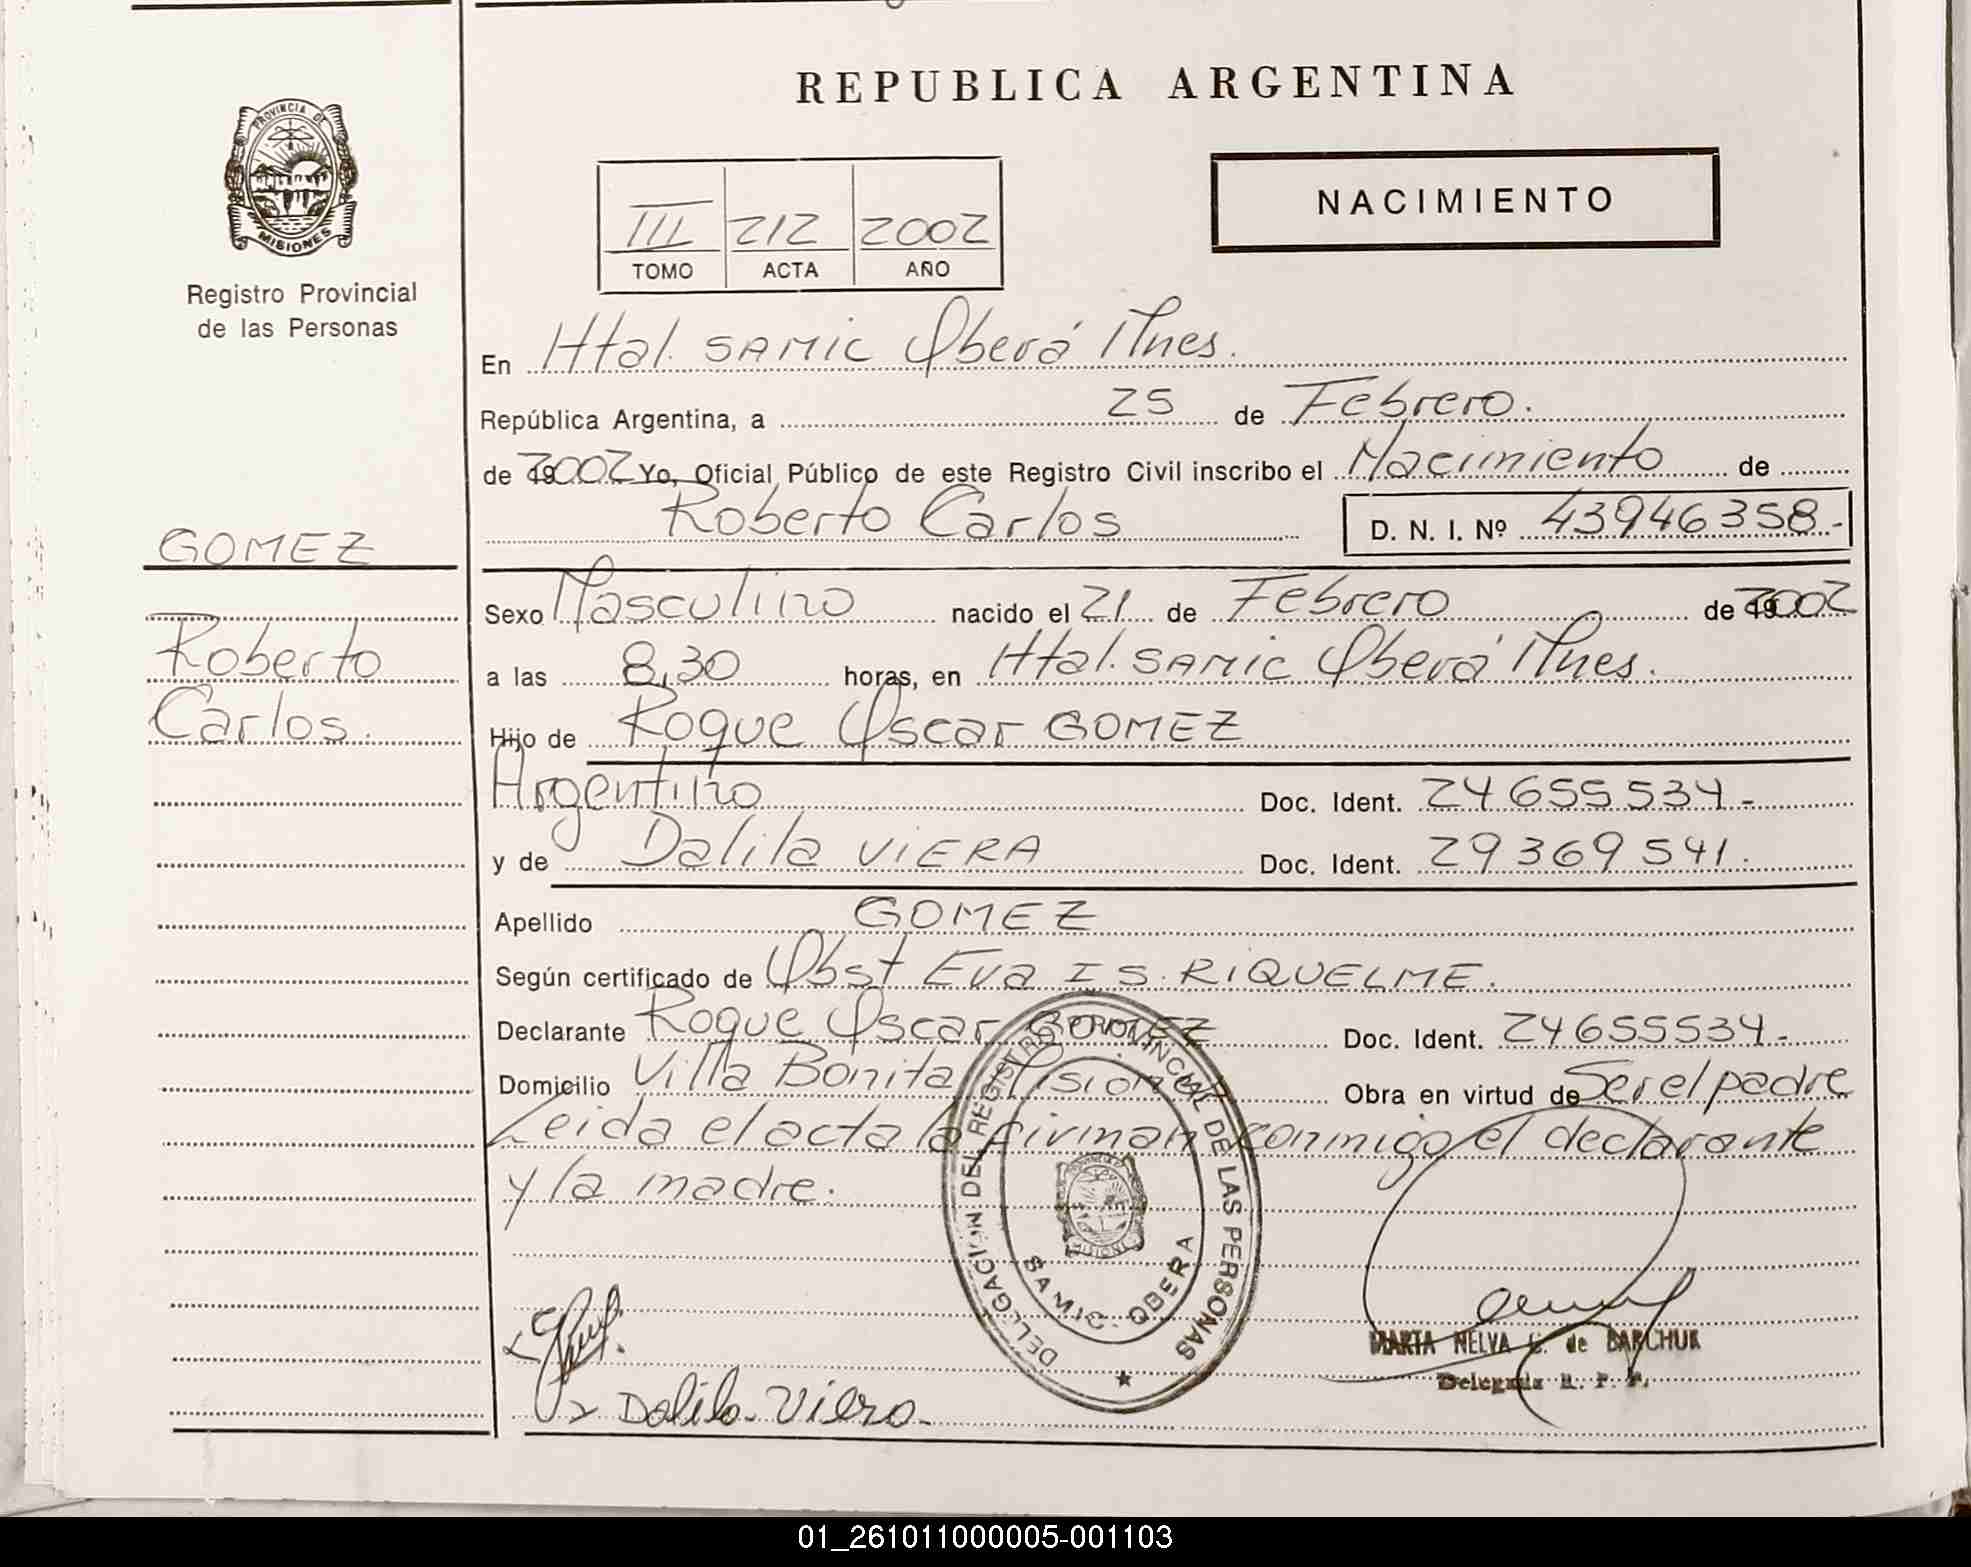 REPUBLICA ARGENTINA
PROVINCIA DE
MISIONES
Registro Provincial
de las Personas
NACIMIENTO
III 212 2002
TOMO ACTA AÑO
En Htal. SAMIC Oberá Mnes.
República Argentina, a 25 de Febrero.
de 2002 Yo, Oficial Público de este Registro Civil inscribo el Nacimiento de
Roberto Carlos D. N. I. Nº 43946358.-
GOMEZ
Roberto
Carlos.
Sexo Masculino nacido el 21 de Febrero de 2002
a las 8,30 horas, en Htal. SAMIC Oberá Mnes.
Hijo de Roque Oscar GOMEZ
Argentino Doc. Ident. 24655534.-
y de Dalila VIERA Doc. Ident. 29369541.
Apellido GOMEZ
Según certificado de Obst Eva IS. RIQUELME.
Declarante Roque Oscar GOMEZ Doc. Ident. 24655534.-
Domicilio Villa Bonita Misiones Obra en virtud de Ser el padre
Leida el acta la firman conmigo el declarante
y la madre.
DELEGACION DEL REGISTRO PROVINCIAL DE LAS PERSONAS
SAMIC - OBERA
MARTA NELVA G. de BARCHUK
Delegada R. P. P.
Dalila Viera.
01_261011000005-001103